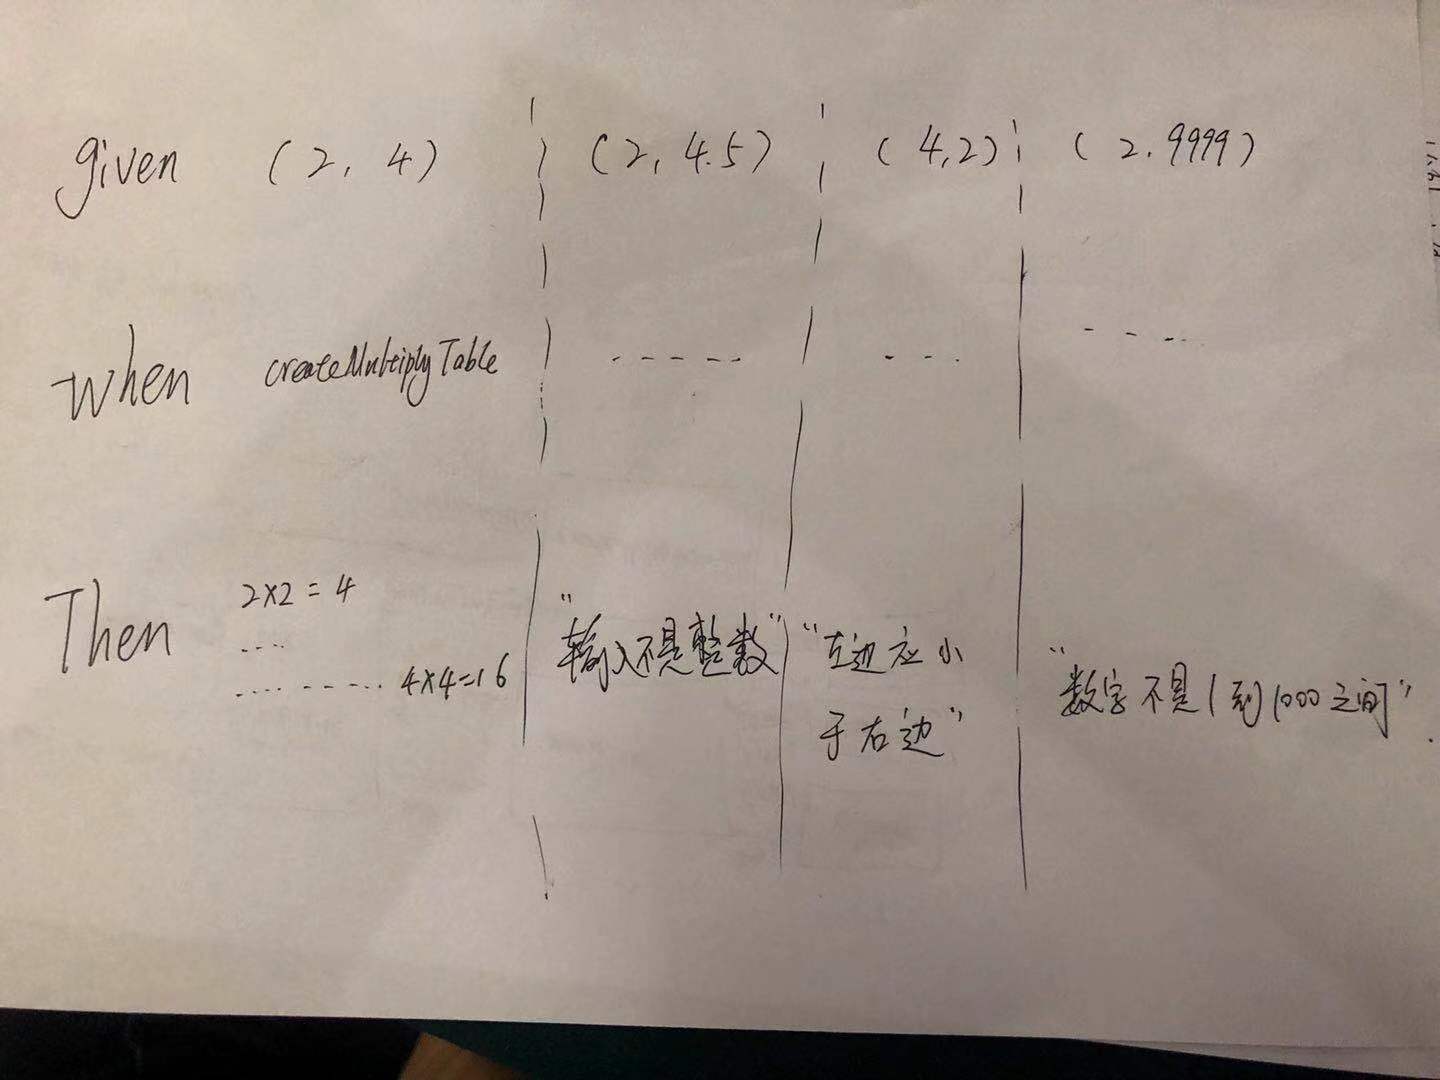 given (2, 4) (2, 4.5) (4,2) (2.9999)
when createMultiplyTable ----- --- ----
Then 2×2=4
....
........ 4×4=16
"输入不是整数"
"左边应小
于右边"
"数字不是1到1000之间"